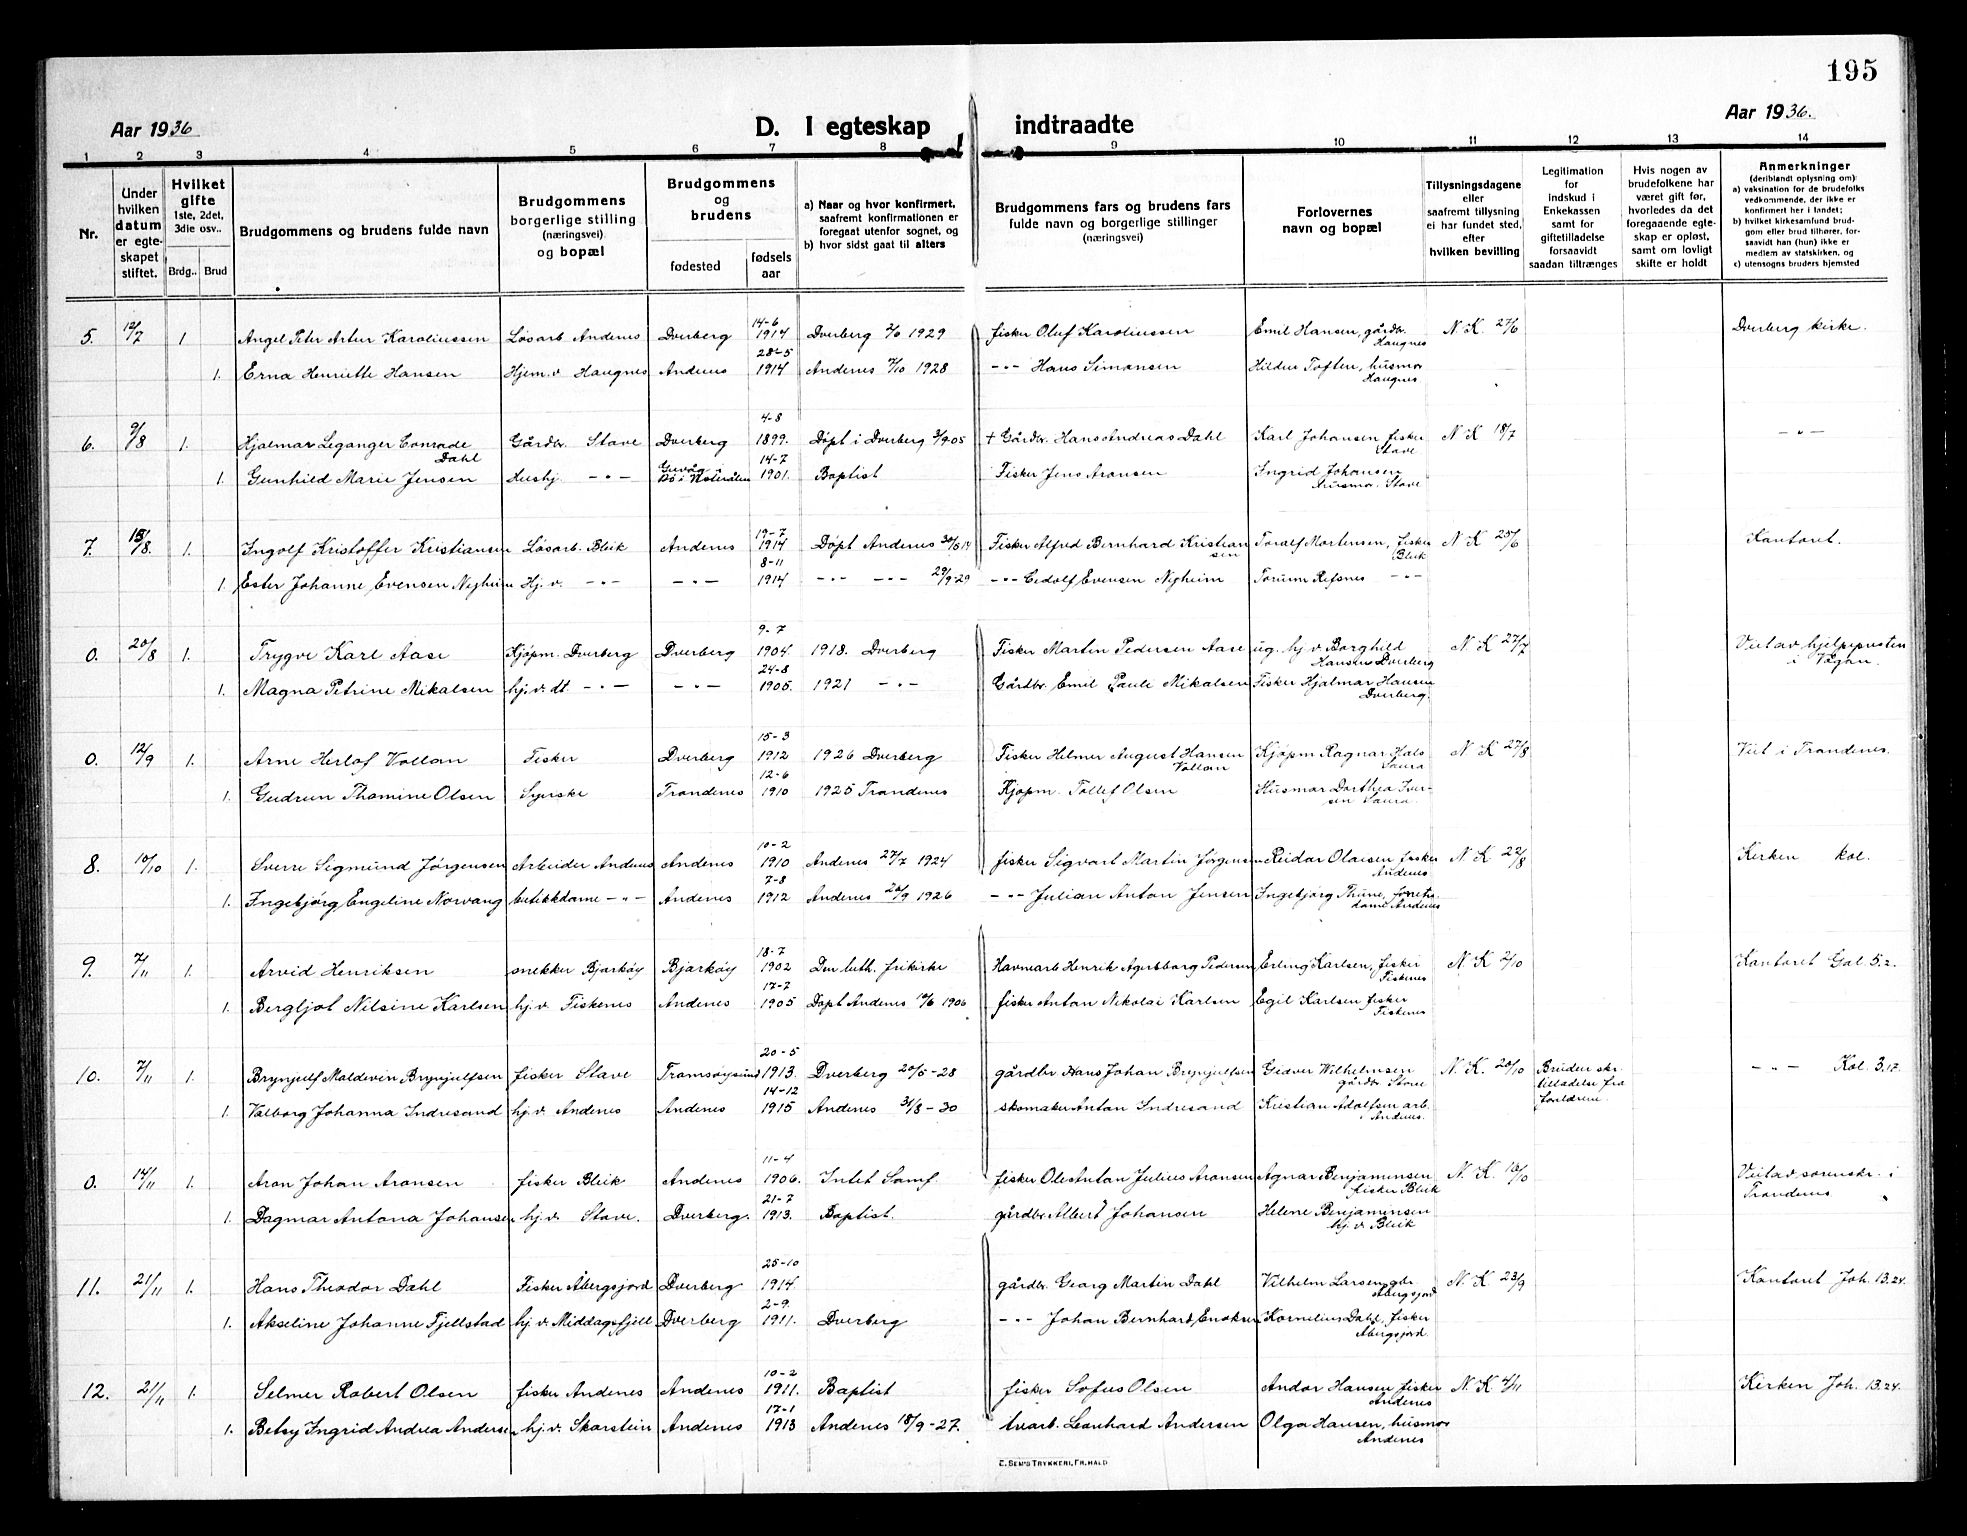 195
Aar 1936
D. I egteskap indtraadte
Aar 1936.
1 2 3 4 5 6 7 8 9 10 11 12 13 14
Nr.
Under hvilken datum er egteskapet stiftet.
Hvilket gifte 1ste, 2det, 3die osv..
Brdg.. Brud
Brudgommens og brudens fulde navn
Brudgommens borgerlige stilling (næringsvei) og bopæl
Brudgommens og brudens
fødested
fødsels aar
a) Naar og hvor konfirmert, saafremt konfirmationen er foregaat utenfor sognet, og
b) hvor sidst gaat til alters
Brudgommens fars og brudens fars fulde navn og borgerlige stillinger (næringsvei)
Forlovernes navn og bopæl
Tillysningsdagene eller saafremt tillysning ei har fundet sted, efter hvilken bevilling
Legitimation for indskud i Enkekassen samt for giftetilladelse forsaavidt saadan tiltrænges
Hvis nogen av brudefolkene har været gift før, hvorledes da det foregaaende egteskap er opløst, samt om lovligt skifte er holdt
Anmerkninger (deriblandt oplysning om):
a) vaksination for de brudefolks vedkommende, der ikke er konfirmert her i landet;
b) hvilket kirkesamfund brudgom eller brud tilhører, forsaavidt han (hun) ikke er medlem av statskirken, og
c) utensogns bruders hjemsted
5. 12/7 1 Angel Peter Artur Karoliussen Løsarb. Andenes Dverberg 14-6 1914 Dverberg 1929 fisker Oluf Karoliussen Emil Hansen, gårdbr. Haugnes N.K 27/6 Dverberg kirke.
1. Erna Henriette Hansen Hjem.v. Haugnes Andenes 28-5 1914 Andenes 7/10 1928 -"- Hans Simonsen Hilden Toften, husmor Haugnes
6. 9/8 1. Hjalmar Leganger Conrade Dahl Gårdbr. Stave Dverberg 4-8 1899. Døpt i Dverberg 3/9 05 + Gårdbr. Hans Andreas Dahl Karl Johansen, fisker Stave N.K 18/7 -"-
1. Gunhild Marie Jensen Hushj. -"- Guvåg i Bø i Vesterålen 14-7 1901. Baptist Fisker Jens Aronsen Ingrid Johansen husmor. Stave
7. 15/8. 1. Ingolf Kristoffer Kristiansen Løsarb. Bleik Andenes 19-7 1914 Døpt Andenes 30/8 14 Fisker Alfred Bernhard Kristiansen Toralf Mortensen, fisker Bleik N.K 25/6 Kontoret.
1. Ester Johanne Evensen Nyheim Hj.v. -"- -"- 8-11 1914 -"- -"- 29/9-29 -"- Cedolf Evensen Nyheim Torum Refsnes -"-
0. 20/8 1. Trygve Karl Aase Kjøpm. Dverberg Dverberg 9-7 1904 1918. Dverberg Fisker Martin Pedersen Aase ug. hj.v Borghild Hansen Dverberg N.K 27/7 Viet av hjelpepresten i Vågan.
1. Magna Petrine Mikalsen hj.v. dt. -"- -"- 24-8 1905. 1921 -"- Gårdbr. Emil Pauli Mikalsen Fisker Hjalmar Hansen Dverberg.
0. 12/9 1. Arne Herlof Vollan Fisker Dverberg 15-3 1912 1926 Dverberg Fisker Helmer August Hansen Vollan Kjøpm Ragnar Hals Saura N.K 27/8 Viet i Trondenes.
1. Gudrun Thomine Olsen Syerske Trondenes 12-6 1910 1925 Trondenes Kjøpm. Tollef Olsen Husmor Dorthea Iversen Saura.
8. 10/10 1. Sverre Sigmund Jørgensen Arbeider Andenes Andenes 10-2 1910 Andenes 27/7 1924 fisker Sigvart Martin Jørgensen Reidar Olaisen fisker Andenes N.K 22/8 Kirken Kol.
1. Ingebjørg Engeline Norvang butikkdame -"- Andenes 7-8 1912 Andenes 26/9 1926 -"- Julian Anton Jensen Ingebjørg Thune, Andenes
9. 7/11 1. Arvid Henriksen snekker Bjarkøy Bjarkøy 18-7 1902 Den luth. frikirke Havnearb Henrik Agersborg Pedersen Erling Karlsen, fisker Fiskenes N.K 2/10 Kontoret Gal. 5.2.
1. Bergljot Nilsine Karlsen hj.v. Fiskenes Andenes 17-7 1905 Døpt Andenes 10/6 1906 fisker Anton Nikolai Karlsen Egil Karlsen fisker Fiskenes
10. 7/11 1. Brynjulf Maldevin Brynjulfsen fisker Stave Tromsøysund 20-5 1913. Dverberg 20/5-28 gårdbr Hans Johan Brynjulfsen Gidver Wilhelmsen gårdbr. Stave N.K. 20/10 Bruden skr. tilladelse fra foreldrene. -"- Kol. 3.17.
1. Valborg Johanna Indresand hj.v. Andenes Andenes 14-12 1915 Andenes 31/8-30 skomaker Anton Indresand Kristian Adolfsen arb. i Andenes.
0. 14/11 1. Aron Johan Aronsen fisker Bleik Andenes 11-4 1906. Intet Samf. fisker Ole Anton Julius Aronsen Agnar Benjaminsen fisker Bleik N.K. 10/10 Viet av sorenskr. i Trondenes
1. Dagmar Antona Johansen hj.v. Stave. Dverberg. 21-7 1913. Baptist. gårdbr. Albert Johansen Helene Benjaminsen hj.v. Bleik
11. 21/11 1. Hans Theodor Dahl Fisker Åbergsjord Dverberg 25-10 1914. gårdbr. Georg Martin Dahl Vilhelm Larsen gbr. Åbergsjord N.K. 23/9 Kontoret Joh. 13.24.
1. Akseline Johanne Fjellstad hj.v. Middagsfjell Dverberg 2-9. 1911. Dverberg -"- Johan Bernhard Enoksen Kornelius Dahl, fisker Åbergsjord.
12. 21/11 1. Selmer Robert Olsen fisker Andenes Andenes 10-2 1911. Baptist fisker Sofus Olsen Andor Hansen fisker Andenes N.K 4/11 Kirken Joh. 13.24.
1. Betsy Ingrid Andrea Andersen hj.v. Skarstein Andenes 17-1 1913 Andenes 18/9-27. Leonhard Andersen Olga Hansen, husmor Andenes
E. SEM'S TRYKKERI, FR.HALD